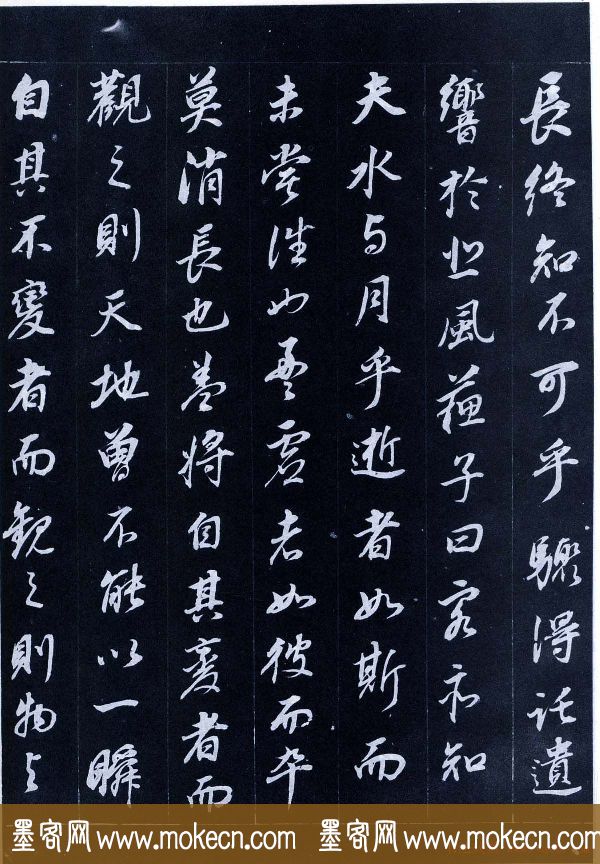 長終知不可乎驟得託遺
響於悲風蘇子曰客亦知
夫水与月乎逝者如斯而
未嘗往也盈虛者如彼而卒
莫消長也盖將自其變者而
觀之則天地曾不能以一瞬
自其不變者而觀之則物与
墨客网 www.mokecn.com 墨客网 www.mokecn.com